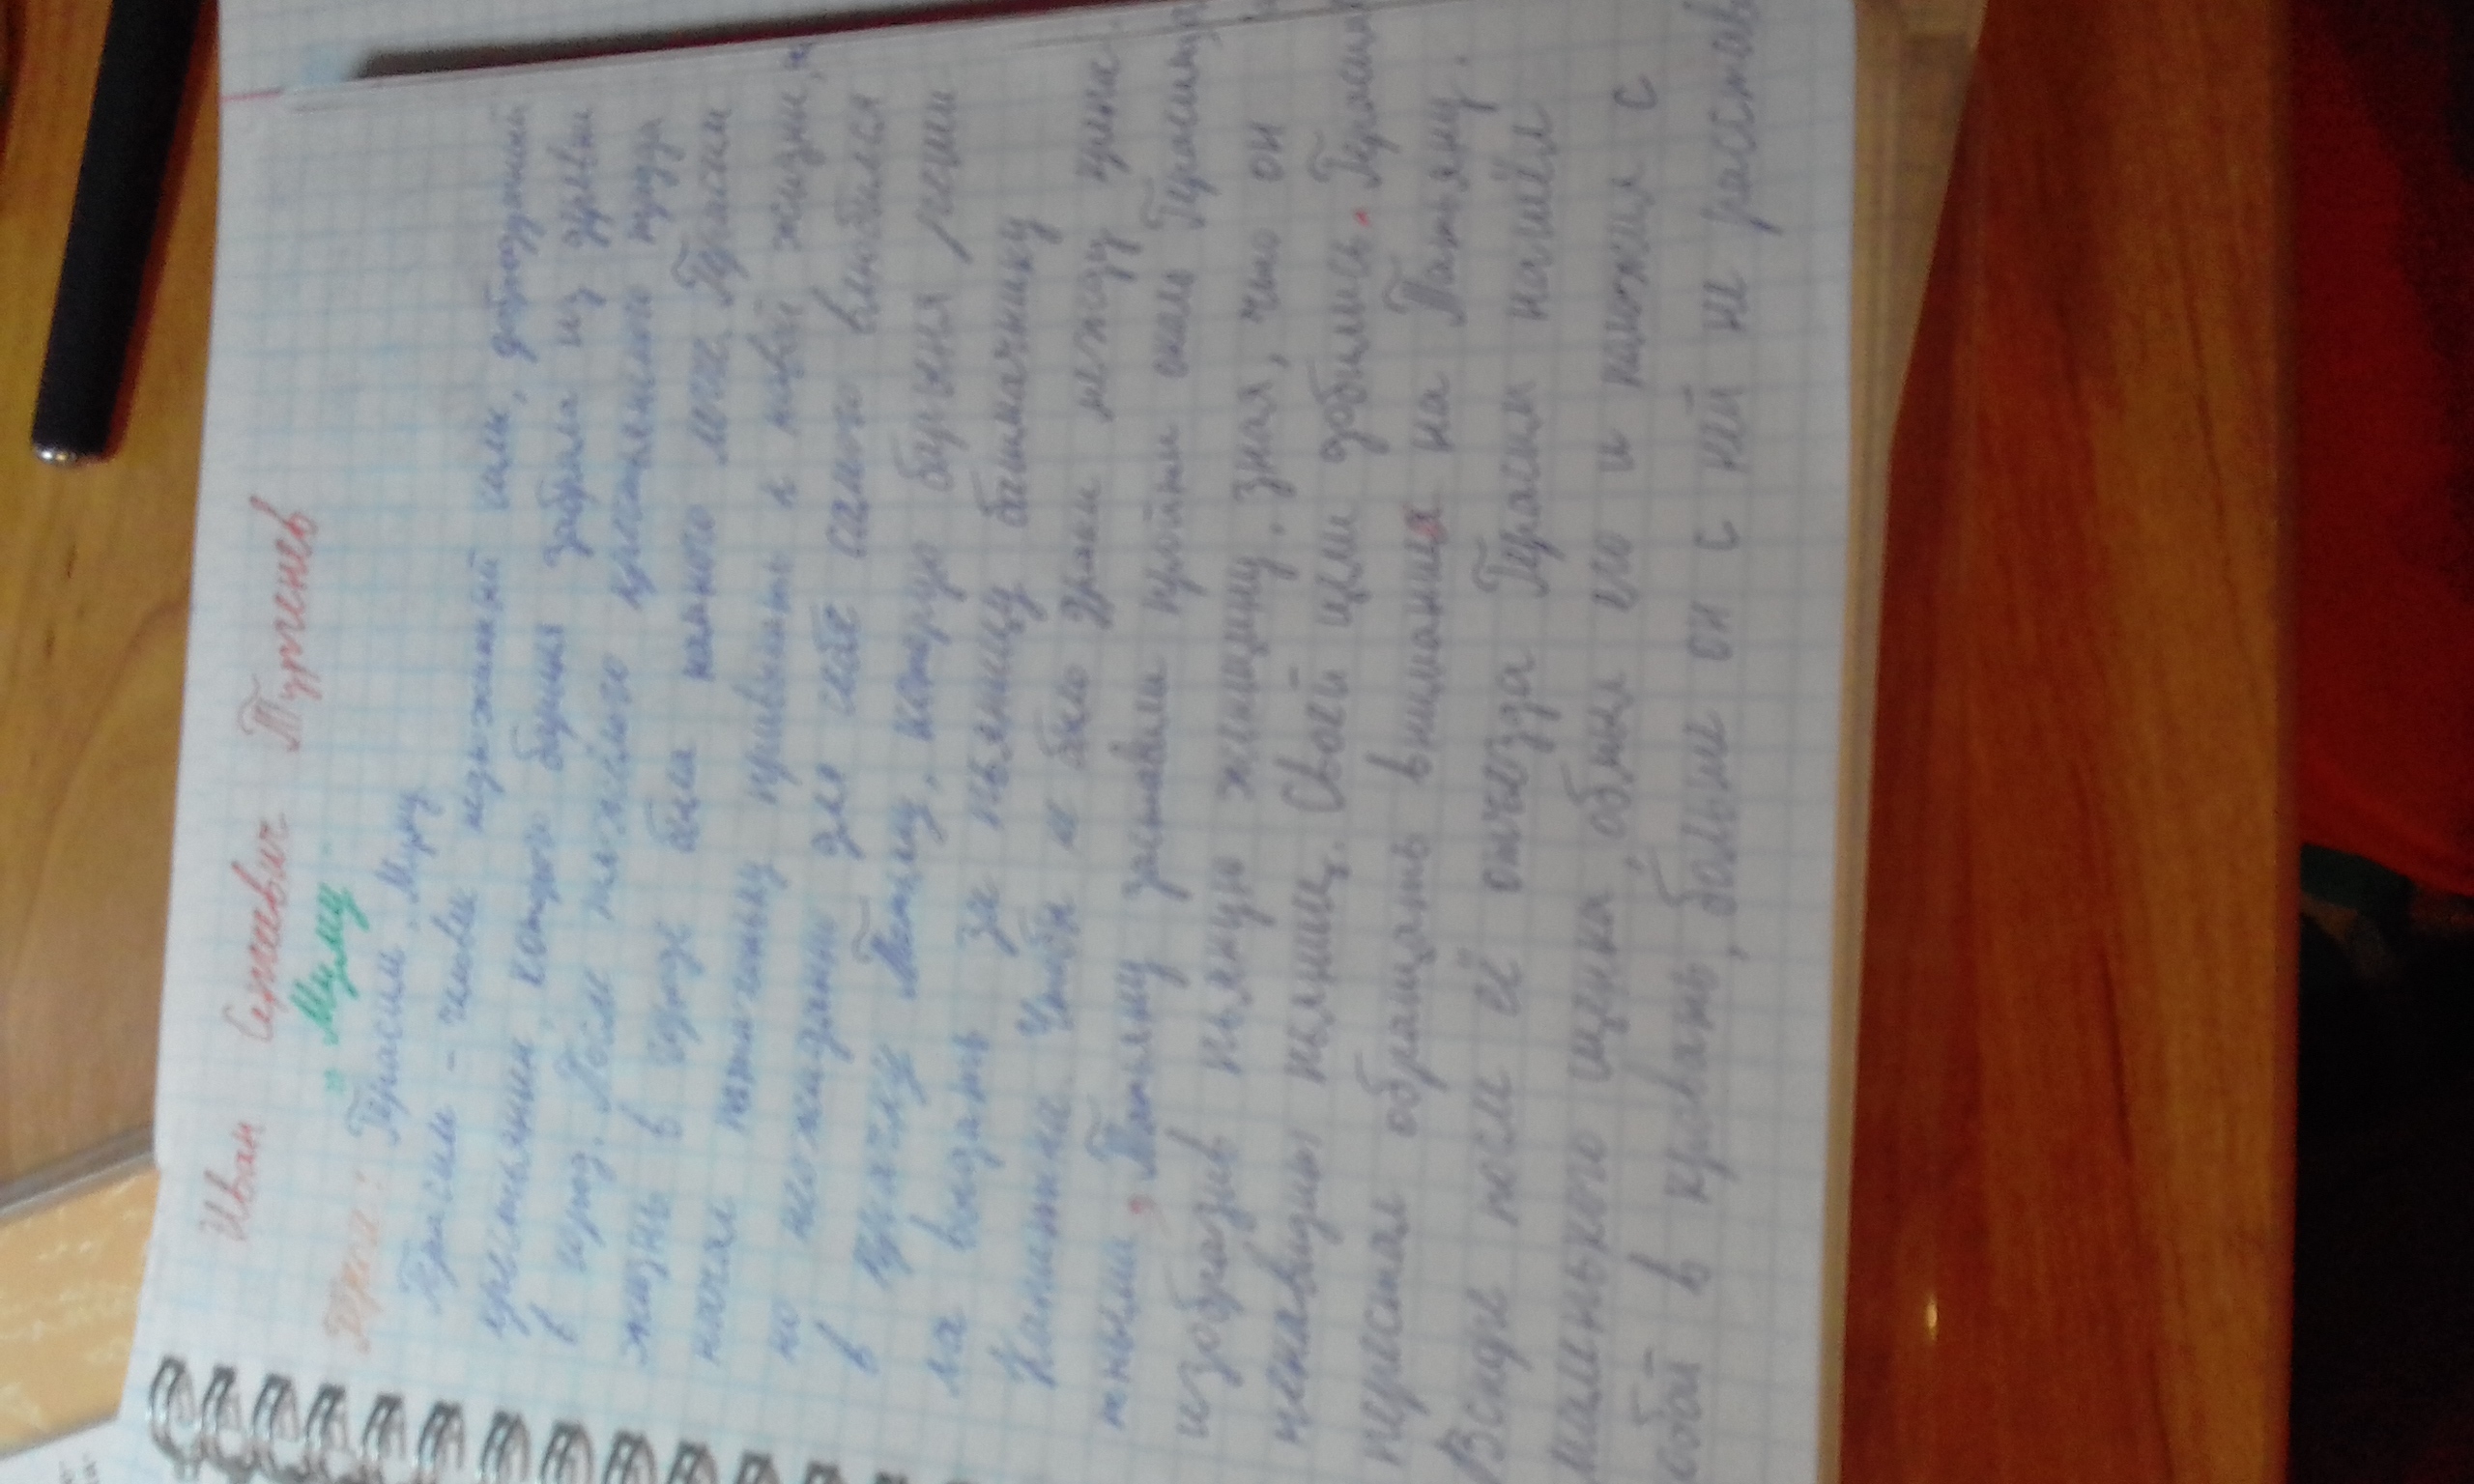 Иван Сергеевич Тургенев
"Муму"
Герои: Герасим, Муму
Герасим - человек недюжинной силы, добродушный
крестьянин, которого барыня забрала из деревни
в город. После тяжёлого крестьянского труда
жизнь в городе была намного легче. Герасим
начал понемногу привыкать к новой жизни, и
но неожиданно для себя самого влюбился
в прачку Татьяну, которую барыня реши
ла выдать за пьяницу башмачнику
Капитона. Чтобы не было драки между
тными, Татьяну заставили пройти около Герасима,
изобразив пьяную женщину. Зная, что он
ненавидит пьяниц. Своей цели добились. Герасим
перестал обращать внимания на Татьяну.
Вскоре после её отъезда Герасим нашёл
маленького щенка, обмыл его и положил с
собой в кровать, больше он с ней не расстав